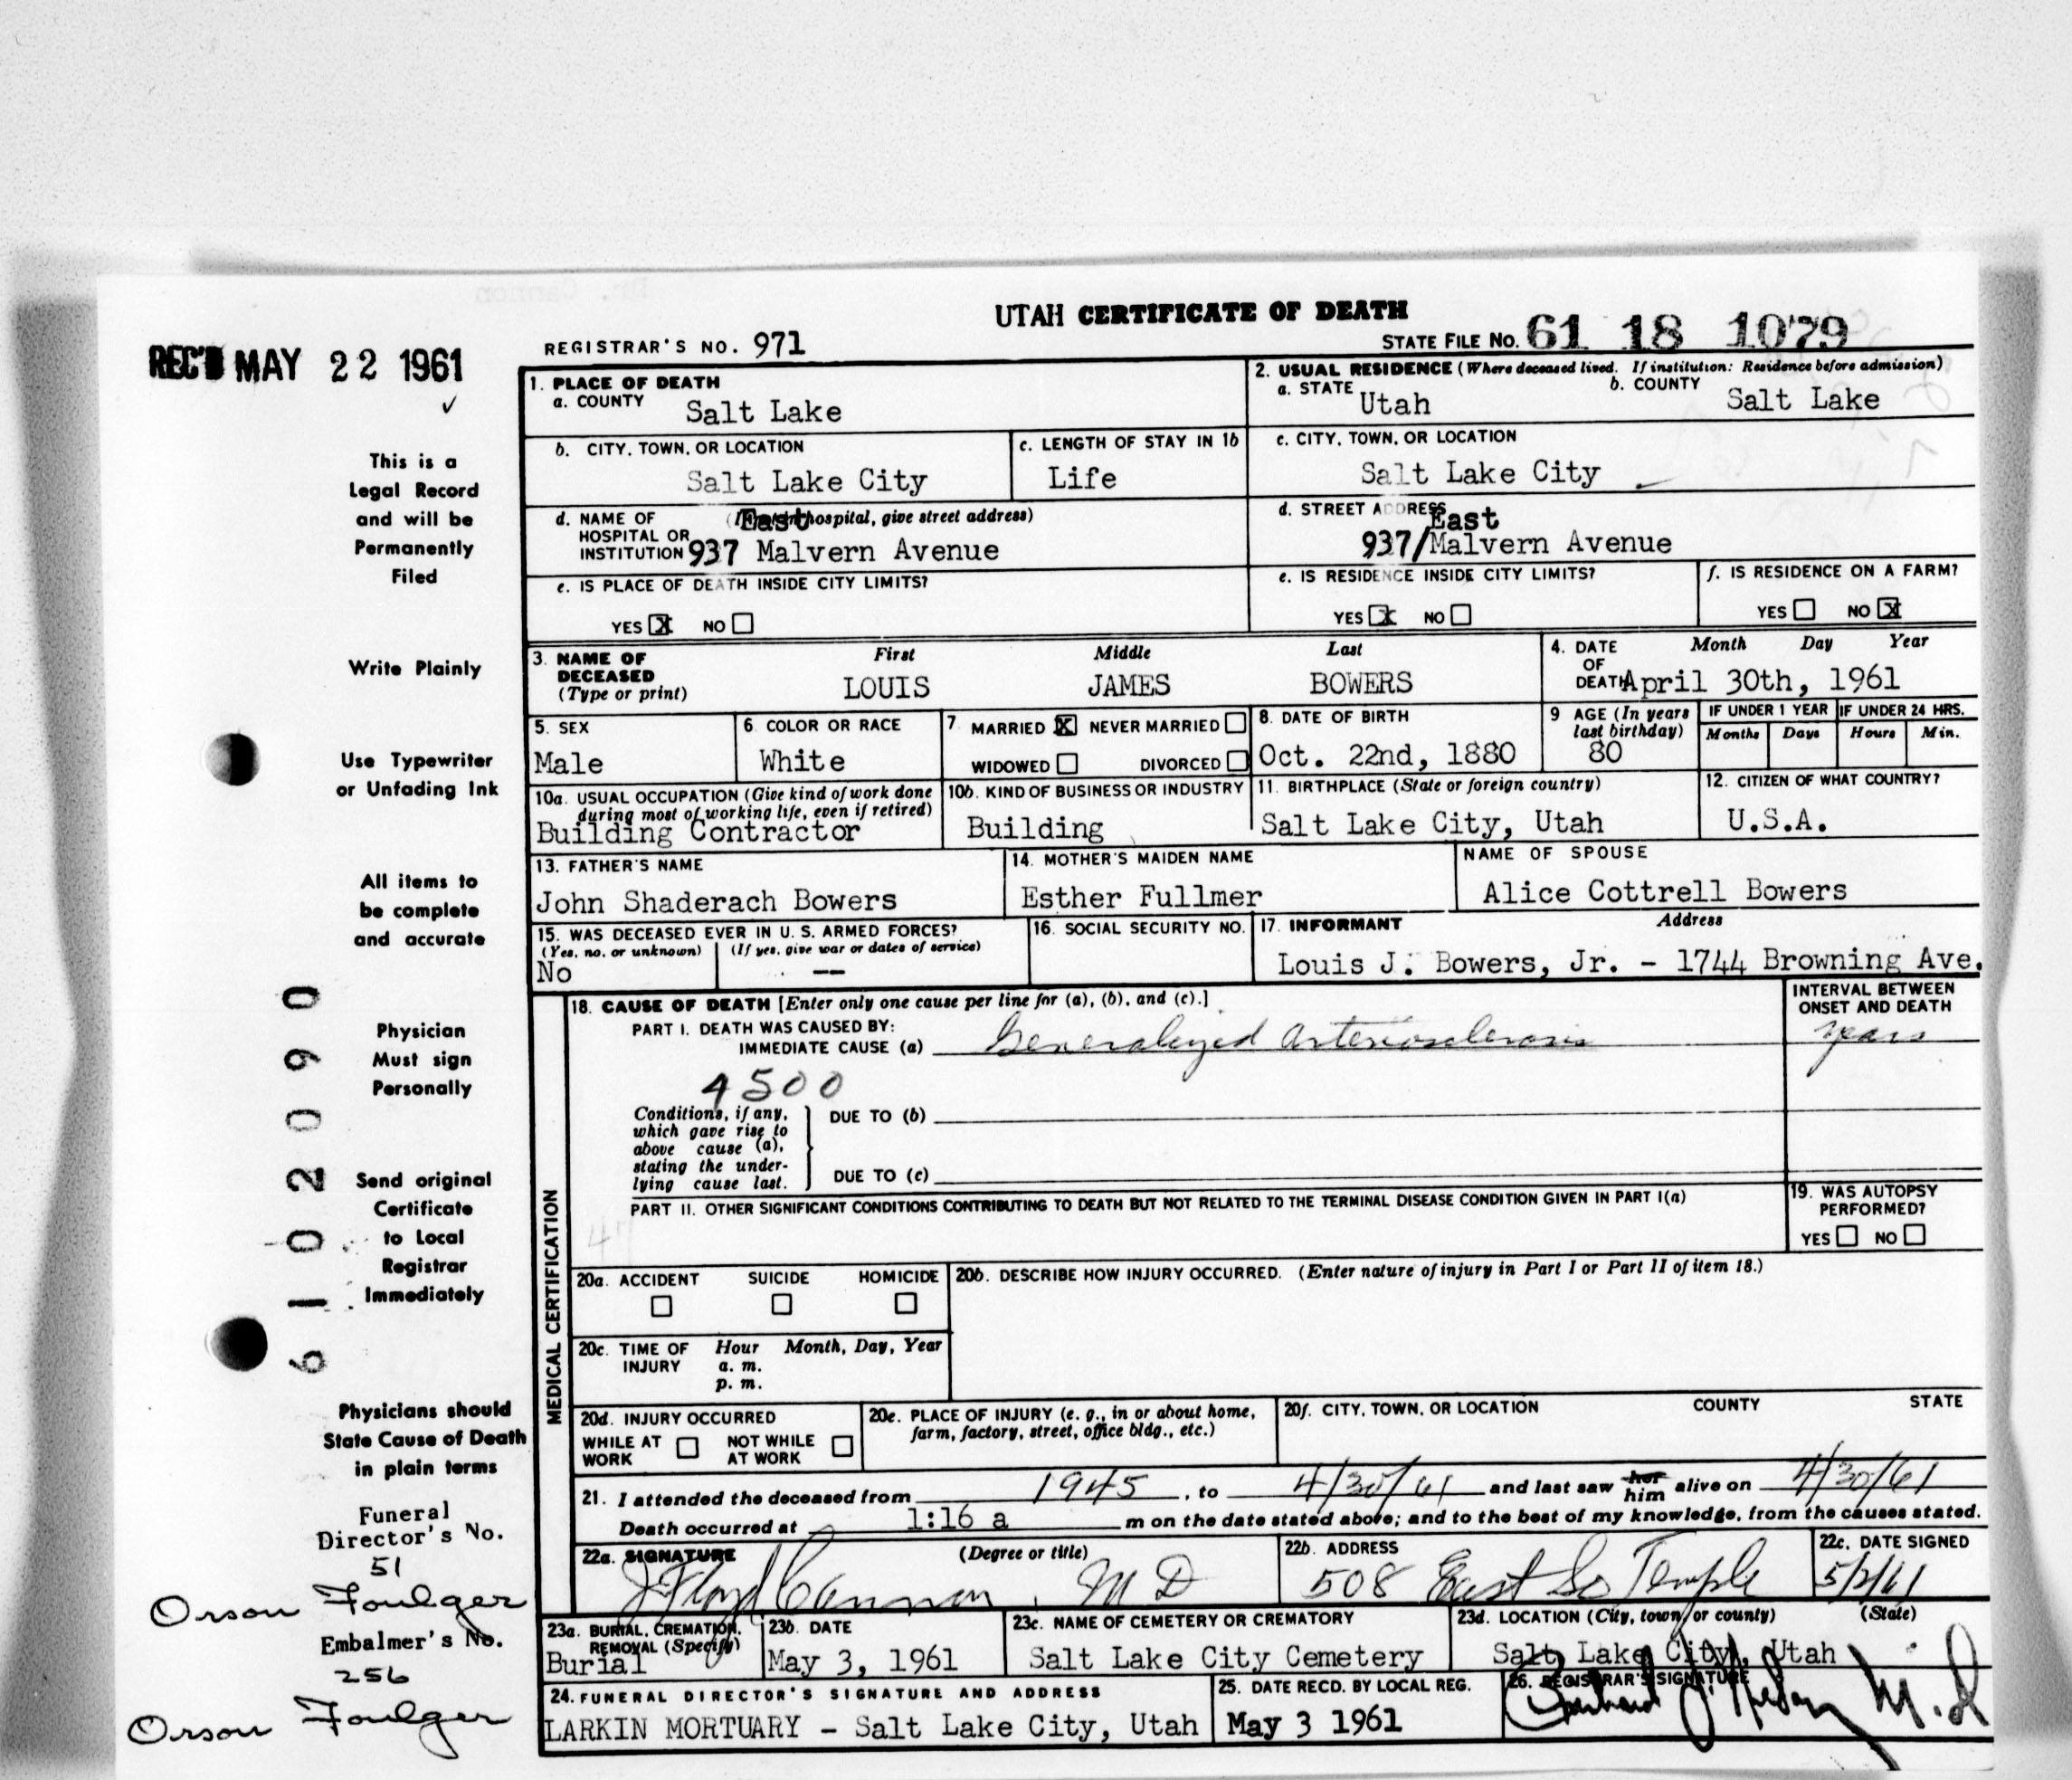 UTAH CERTIFICATE OF DEATH
REC'D MAY 22 1961
REGISTRAR'S NO. 971
STATE FILE No. 61 18 1079
1. PLACE OF DEATH
a. COUNTY Salt Lake
2. USUAL RESIDENCE (Where deceased lived. If institution: Residence before admission)
a. STATE Utah b. COUNTY Salt Lake
b. CITY, TOWN, OR LOCATION Salt Lake City
c. LENGTH OF STAY IN 1b Life
c. CITY, TOWN, OR LOCATION Salt Lake City
d. NAME OF HOSPITAL OR INSTITUTION hospital, give street address)
East
937 Malvern Avenue
d. STREET ADDRESS
East
937/Malvern Avenue
e. IS PLACE OF DEATH INSIDE CITY LIMITS?
YES X NO
e. IS RESIDENCE INSIDE CITY LIMITS?
YES X NO
f. IS RESIDENCE ON A FARM?
YES NO X
3. NAME OF DECEASED (Type or print)
First Middle Last
LOUIS JAMES BOWERS
4. DATE OF DEATH Month Day Year
April 30th, 1961
5. SEX
Male
6. COLOR OR RACE
White
7. MARRIED X NEVER MARRIED
WIDOWED DIVORCED
8. DATE OF BIRTH
Oct. 22nd, 1880
9 AGE (In years last birthday)
80
IF UNDER 1 YEAR IF UNDER 24 HRS.
Months Days Hours Min.
10a. USUAL OCCUPATION (Give kind of work done during most of working life, even if retired)
Building Contractor
10b. KIND OF BUSINESS OR INDUSTRY
Building
11. BIRTHPLACE (State or foreign country)
Salt Lake City, Utah
12. CITIZEN OF WHAT COUNTRY?
U.S.A.
13. FATHER'S NAME
John Shaderach Bowers
14. MOTHER'S MAIDEN NAME
Esther Fullmer
NAME OF SPOUSE
Alice Cottrell Bowers
15. WAS DECEASED EVER IN U. S. ARMED FORCES?
(Yes, no, or unknown) (If yes, give war or dates of service)
No --
16. SOCIAL SECURITY NO.
17. INFORMANT Address
Louis J. Bowers, Jr. - 1744 Browning Ave.
MEDICAL CERTIFICATION
18. CAUSE OF DEATH [Enter only one cause per line for (a), (b), and (c).]
PART I. DEATH WAS CAUSED BY:
IMMEDIATE CAUSE (a) Generalized Arteriosclerosis
INTERVAL BETWEEN ONSET AND DEATH
years
4500
Conditions, if any, which gave rise to above cause (a), stating the underlying cause last.
DUE TO (b)
DUE TO (c)
PART II. OTHER SIGNIFICANT CONDITIONS CONTRIBUTING TO DEATH BUT NOT RELATED TO THE TERMINAL DISEASE CONDITION GIVEN IN PART I(a)
19. WAS AUTOPSY PERFORMED?
YES NO
20a. ACCIDENT SUICIDE HOMICIDE
20b. DESCRIBE HOW INJURY OCCURRED. (Enter nature of injury in Part I or Part II of item 18.)
20c. TIME OF INJURY Hour Month, Day, Year
a. m.
p. m.
20d. INJURY OCCURRED
WHILE AT WORK NOT WHILE AT WORK
20e. PLACE OF INJURY (e. g., in or about home, farm, factory, street, office bldg., etc.)
20f. CITY, TOWN, OR LOCATION COUNTY STATE
21. I attended the deceased from 1945, to 4/30/61 and last saw her him alive on 4/30/61
Death occurred at 1:16 a m on the date stated above; and to the best of my knowledge, from the causes stated.
22a. SIGNATURE (Degree or title)
J Floyd Cannon, M D
22b. ADDRESS
508 East So Temple
22c. DATE SIGNED
5/2/61
23a. BURIAL, CREMATION, REMOVAL (Specify)
Burial
23b. DATE
May 3, 1961
23c. NAME OF CEMETERY OR CREMATORY
Salt Lake City Cemetery
23d. LOCATION (City, town, or county) (State)
Salt Lake City, Utah
24. FUNERAL DIRECTOR'S SIGNATURE AND ADDRESS
LARKIN MORTUARY - Salt Lake City, Utah
25. DATE RECD. BY LOCAL REG.
May 3 1961
26. REGISTRAR'S SIGNATURE
M.D
This is a
Legal Record
and will be
Permanently
Filed
Write Plainly
Use Typewriter
or Unfading Ink
All items to
be complete
and accurate
Physician
Must sign
Personally
Send original
Certificate
to Local
Registrar
Immediately
Physicians should
State Cause of Death
in plain terms
Funeral
Director's No.
51
Orson Foulger
Embalmer's No.
256
Orson Foulger
6102090
Dr. Cannon